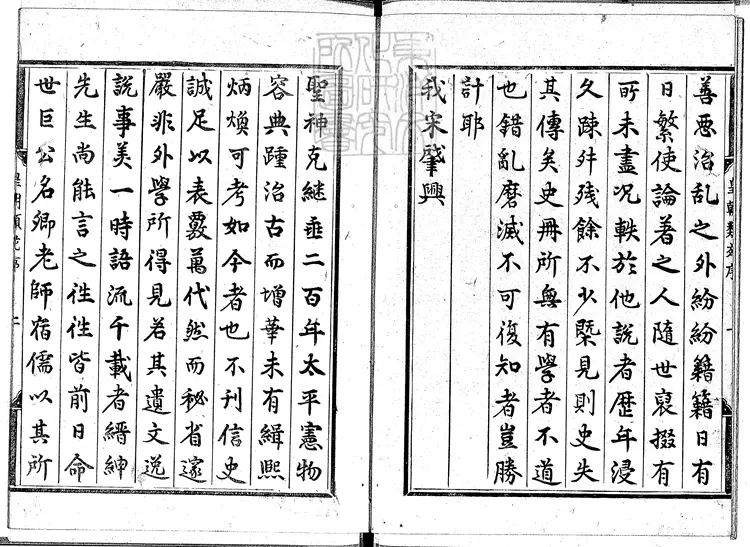 善惡治乱之外紛紛籍籍日有
日繁使論著之人隨世裒掇有
所未盡况軼於他説者歴年浸
久踈舛残餘不少槩見則史失
其傳矣史冊所無有學者不道
也錯亂磨滅不可復知者豈勝
計耶
我宋肇興
聖神克繼垂二百年太平憲物
容典踵治古而增華未有緝熙
炳煥可考如今者也不刊信史
誠足以表覈萬代然而秘省邃
嚴非外學所得見若其遺文逸
説事美一時語流千載者縉紳
先生尚能言之徃徃皆前日命
世巨公名卿老師宿儒以其所